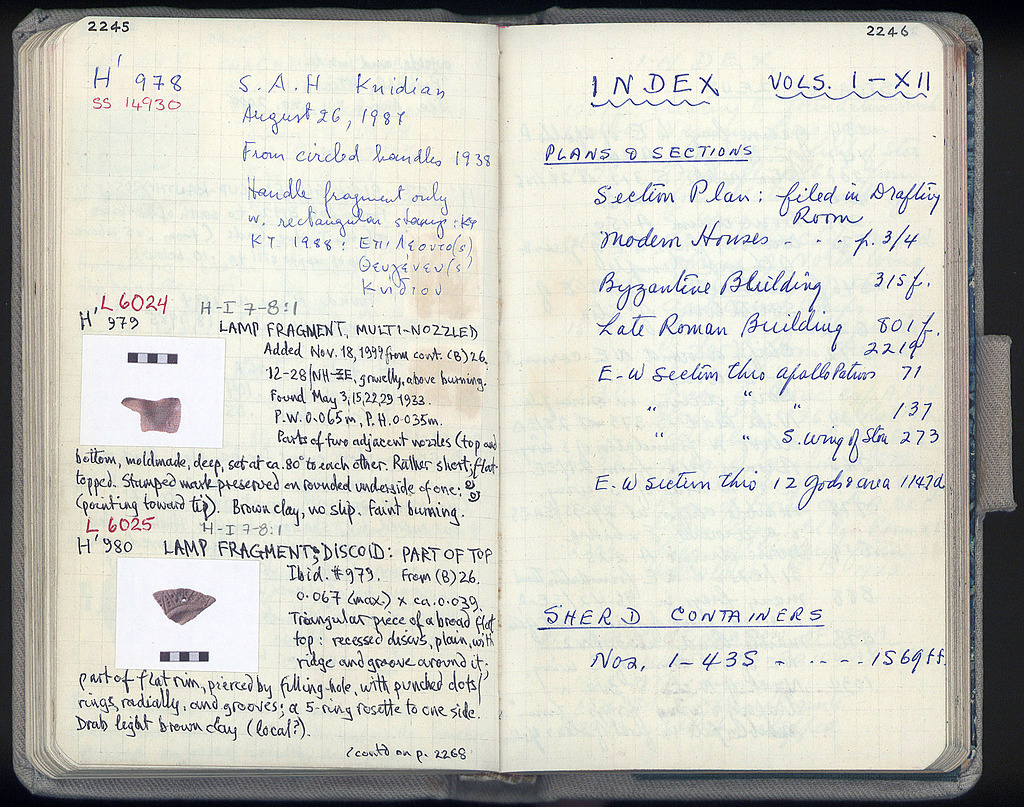 2245
H' 978
SS 14930
S.A.H Knidian
August 26, 1987
From circled handles 1938
Handle fragment only
w. rectangular stamp: KT
KT 1988: Επι Λεοντο(s)
Θευγένευ(s)
Κνιδιον
L 6024 H-I 7-8:1
H' 979 LAMP FRAGMENT, MULTI-NOZZLED
Added Nov. 18, 1999 from cont. (B) 26.
12-28/NH-ΞE, gravelly, above burning.
Found May 3, 15, 22, 29 1933.
P.W. 0.065m, P.H. 0.035m.
Parts of two adjacent nozzles (top and
bottom, moldmade, deep, set at ca. 80° to each other. Rather short; flat
topped. Stamped mark preserved on rounded underside of one:
(pointing toward tip). Brown clay, no slip. Faint burning.
L 6025 H-I 7-8:1
H' 980 LAMP FRAGMENT, DISCOID: PART OF TOP
Ibid. #979. From (B) 26.
0.067 (max.) x ca. 0.039.
Triangular piece of a broad flat
top: recessed discus, plain, with
ridge and groove around it;
part of flat rim, pierced by filling-hole, with punched dots/
rings, radially, and grooves; a 5-ring rosette to one side.
Drab light brown clay (local?).
(cont'd on p. 2268
2246
INDEX VOLS. I-XII
PLANS & SECTIONS
Section Plan: filed in Drafting
Room
Modern Houses - . . . p. 3/4
Byzantine Building 315 f.
Late Roman Building 801 f.
2219
E-W section thro Apollo Patroos 71
" " " 137
" " S. wing of Stoa 273
E-W section thro 12 Gods area 1147d
SHERD CONTAINERS
Nos. 1-435 - . . . . - 1569 ff.